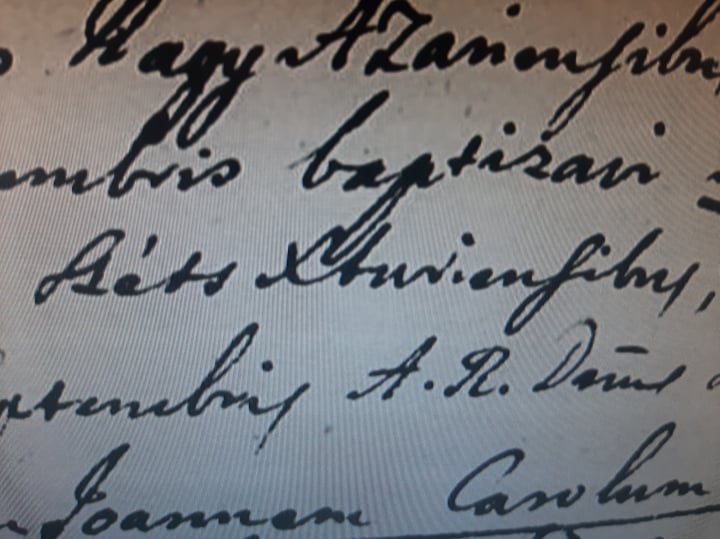 Nagy AZanensibus
embris baptizavi
Xturiensibus,
ptembris A. R. Dnus
Joannem Carolum